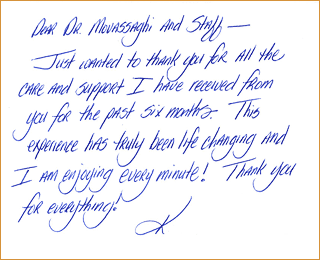 Dear Dr. Movassaghi and Staff —
Just wanted to thank you for all the
care and support I have received from
you for the past six months. This
experience has truly been life changing and
I am enjoying every minute! Thank you
for everything!
K